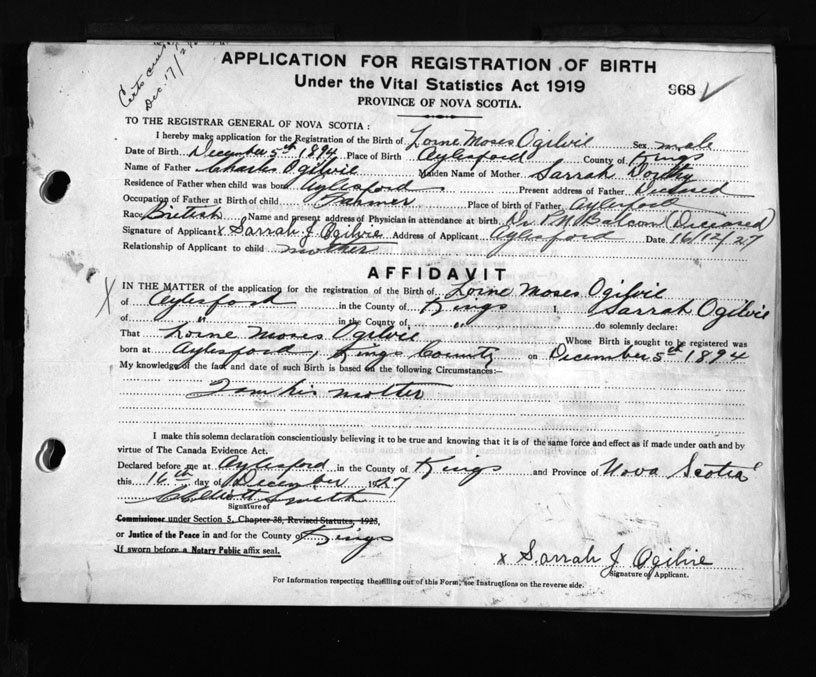 Dec. 17/2
APPLICATION FOR REGISTRATION OF BIRTH
Under the Vital Statistics Act 1919
968 ✓
PROVINCE OF NOVA SCOTIA.
TO THE REGISTRAR GENERAL OF NOVA SCOTIA:
I hereby make application for the Registration of the Birth of Lorne Moses Ogilvie Sex male
Date of Birth December 5th 1894 Place of Birth Aylesford County of Kings
Name of Father Charles Ogilvie Maiden Name of Mother Sarrah Dorthy
Residence of Father when child was born Aylesford Present address of Father Diceased
Occupation of Father at Birth of child Farmer Place of birth of Father Aylesford
Race British Name and present address of Physician in attendance at birth Dr P. N. Balcom (Diceased)
Signature of Applicant x Sarrah J Ogilvie Address of Applicant Aylesford Date 16/12/27
Relationship of Applicant to child mother
AFFIDAVIT
X IN THE MATTER of the application for the registration of the Birth of Lorne Moses Ogilvie
of Aylesford in the County of Kings I, Sarrah Ogilvie
of " in the County of, " do solemnly declare:
That Lorne Moses Ogilvie Whose Birth is sought to be registered was
born at Aylesford, Kings County on December 5th 1894
My knowledge of the fact and date of such Birth is based on the following Circumstances:—
I am his mother
I make this solemn declaration conscientiously believing it to be true and knowing that it is of the same force and effect as if made under oath and by
virtue of The Canada Evidence Act.
Declared before me at Aylesford in the County of Kings and Province of Nova Scotia
this 16th day of December 1927
Elliott Smith
Signature of
Commissioner under Section 5, Chapter 38, Revised Statutes, 1923,
or Justice of the Peace in and for the County of Kings
If sworn before a Notary Public affix seal.
x Sarrah J Ogilvie
Signature of Applicant.
For Information respecting the filling out of this Form, see Instructions on the reverse side.